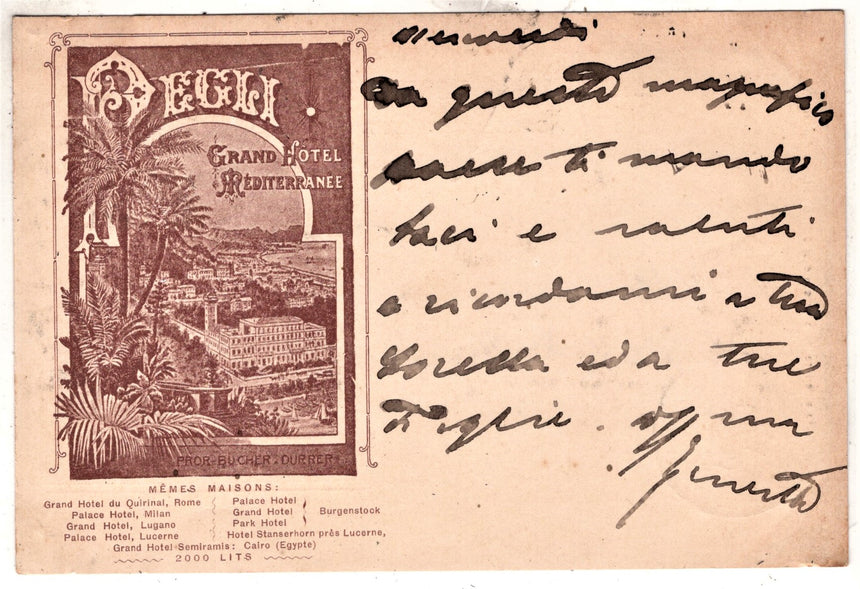 PEGLI
GRAND HOTEL
MÉDITERRANÉE
PROR-BUCHER-DURRER
MÊMES MAISONS:
Grand Hotel du Quirinal, Rome
Palace Hotel, Milan
Grand Hotel, Lugano
Palace Hotel, Lucerne
Palace Hotel
Grand Hotel
Park Hotel
Burgenstock
Hotel Stanserhorn près Lucerne,
Grand Hotel Semiramis: Cairo (Egypte)
2000 LITS
Mercoledi
Da questo magnifico
paese ti mando
baci e saluti
e ricordami a tua
Sorella ed a tue
Figlie.